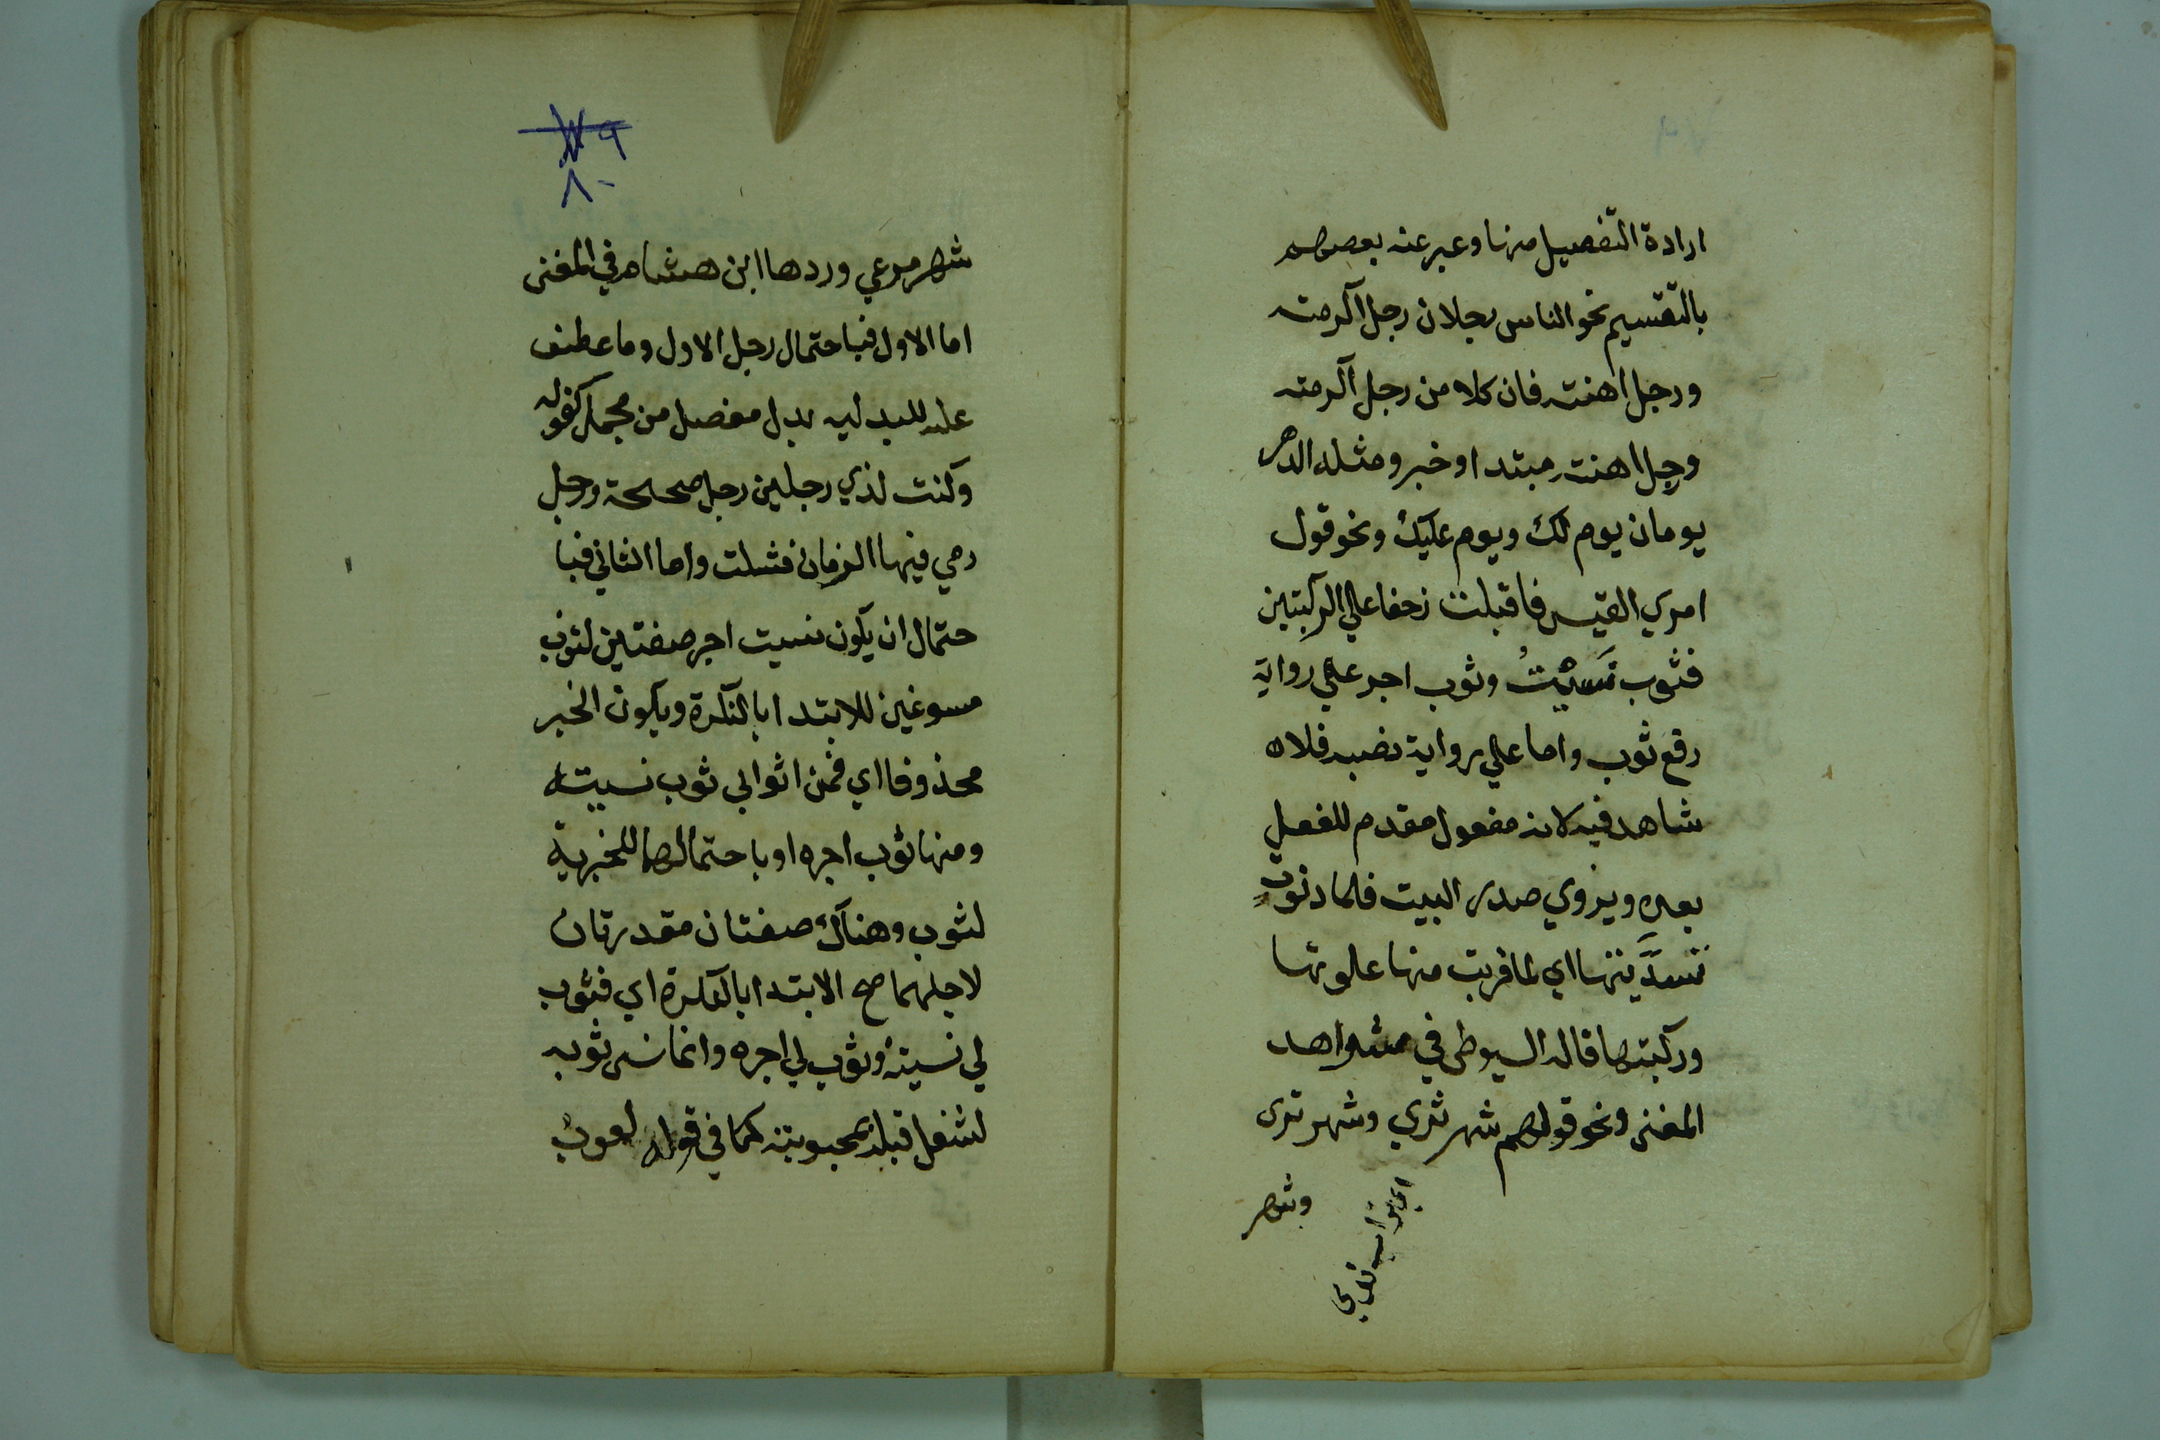 ارادة التفصيل منها وعبر عنه بعضهم
بالتقسيم نحو الناس رجلان رجل اكرمته
ورجل اهنته فان كلا من رجل اكرمته
ورجل اهنته مبتدا وخبر ومثله الدهر
يومان يوم لك ويوم عليك ونحو قول
امري القيس فاقبلت زحفا علي الركبتين
فثوب نَسيْتُ وثوب اجر علي رواية
رفع ثوب واما علي رواية نصبه فلا
شاهد فيه لانه مفعول مقدم للفعل
بعده ويروي صدر البيت فلما دنوت
تسدَّيتها اي لما قربت منها علوتها
وركبتها قاله السيوطي في شواهد
المغني ونحو قولهم شهر ثري وشهر تري
وشهر
اي تراب ندي
٧٩
٨٠
شهر مرعي وردها ابن هشام في المغني
اما الاول فباحتمال رجل الاول وما عطف
عليه للبدليه بدل مفصل من مجمل كقوله
وكنت لذي رجلين رجل صحيحة ورجل
رمي فيها الزمان فشلت واما الثاني فبا
حتمال ان يكون نسيت اجر صفتين لثوب
مسوغين للابتدا بالنكرة ويكون الخبر
محذوفا اي فمن اثوابي ثوب نسيته
ومنها ثوب اجره او باحتمالهما للخبرية
لثوب وهناك صفتان مقدرتان
لاجلهما صح الابتدا بالنكرة اي فثوب
لي نسيته وثوب لي اجره وانما نسي ثوبه
لشغل قلبه بمحبوبته كما في قوله لعوب